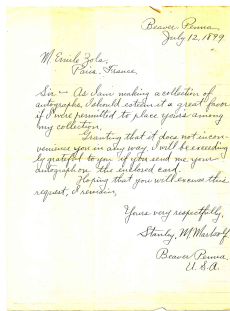 Beaver Penna.
July 12, 1899.
M. Emile Zola,
Paris. France.
Sir — As I am making a collection of
autographs, I should esteem it a great favor
if I were permitted to place yours among
my collection.
Granting that it does not incon-
venience you in any way, I will be exceeding
grateful to you if you send me your
autograph on the enclosed card.
Hoping that you will excuse this
request, I remain,
Yours very respectfully,
Stanley M.
Beaver Penna.
U.S.A.